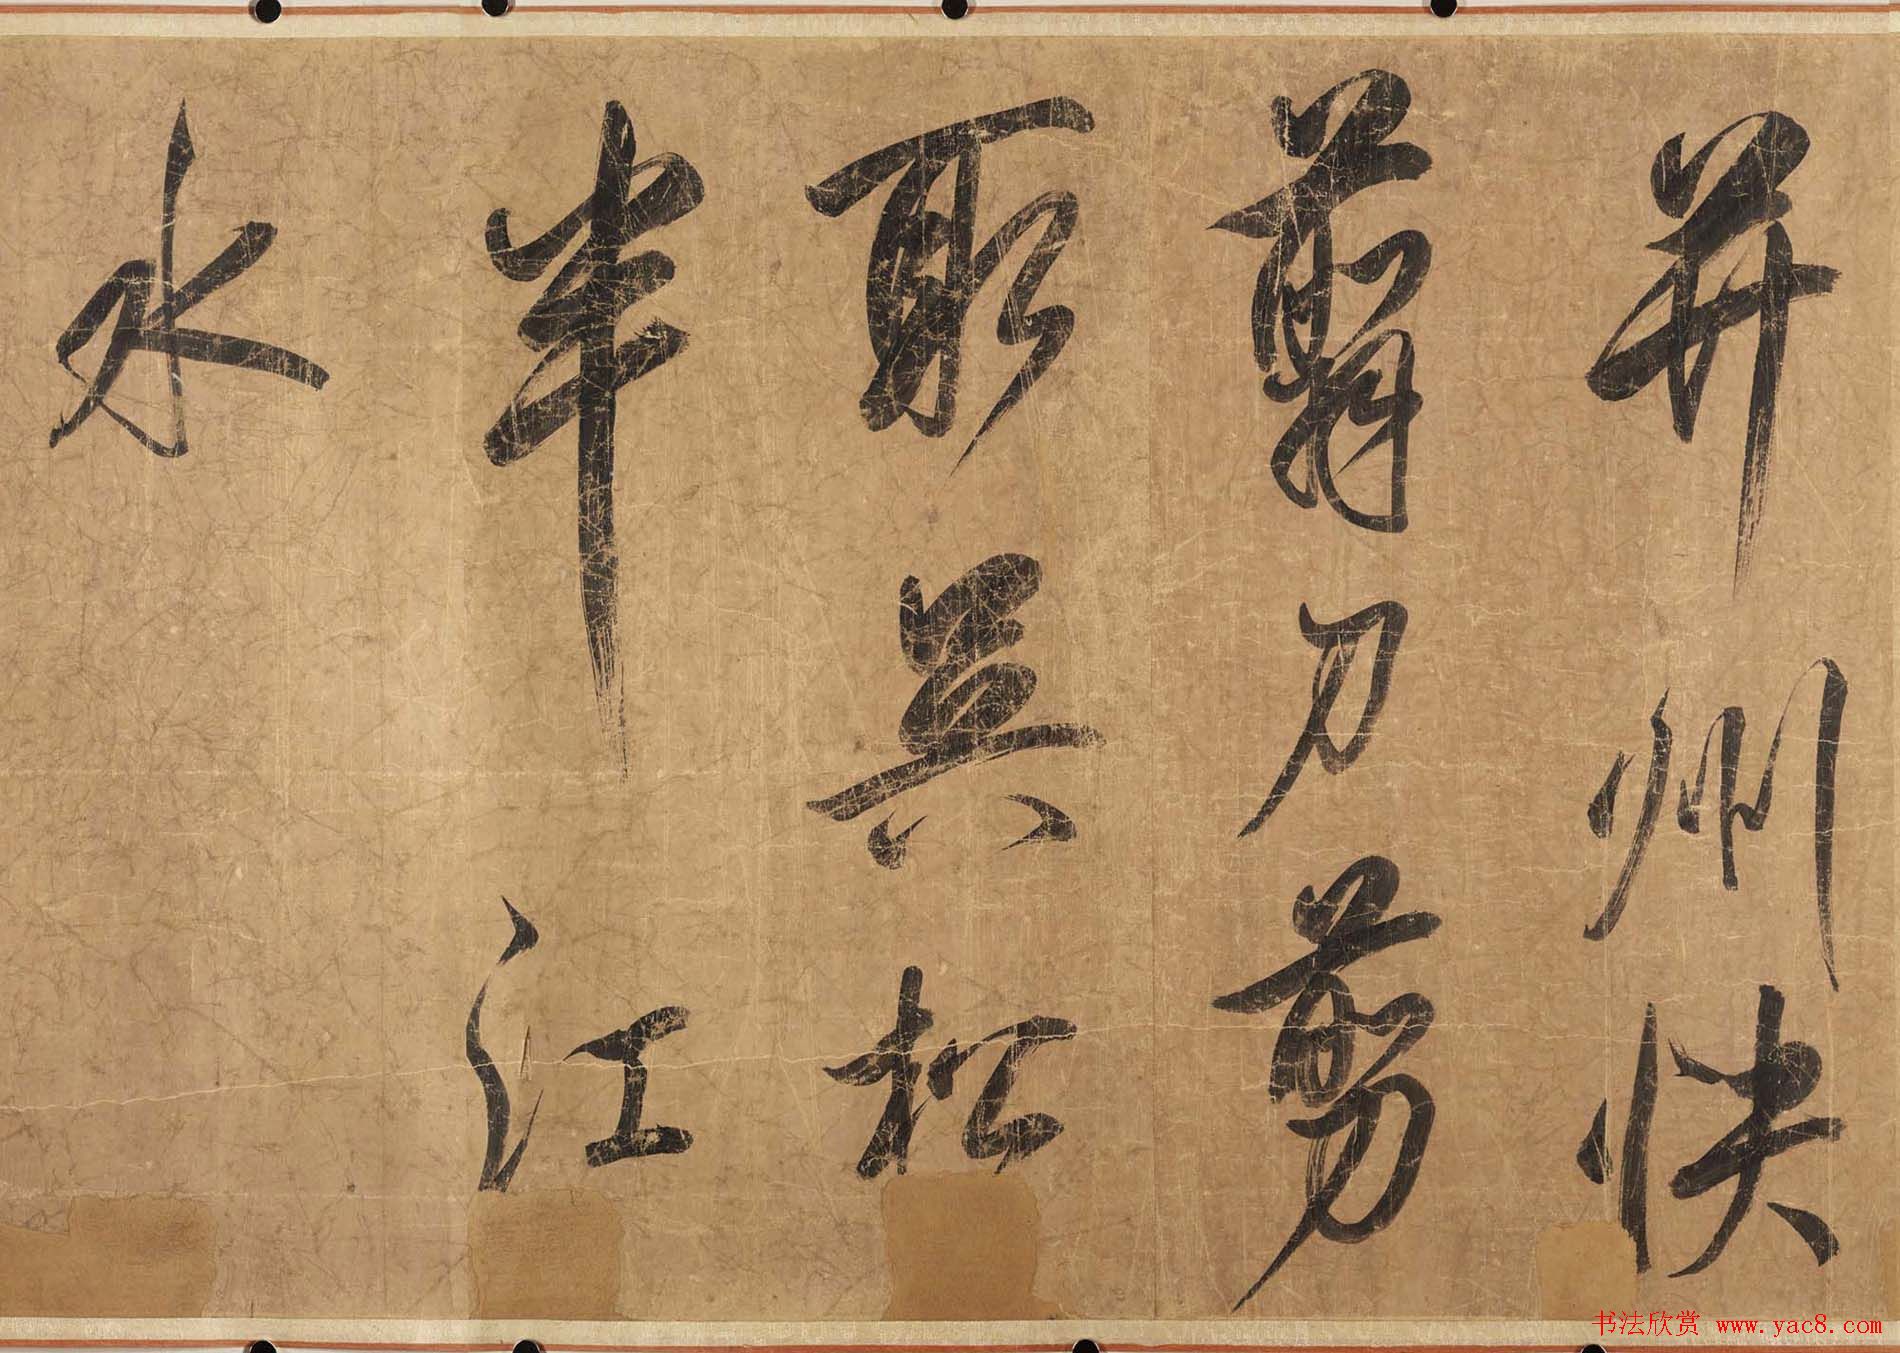 并州快
翦刀剪
取吳松
半江
水
书法欣赏 www.yac8.com